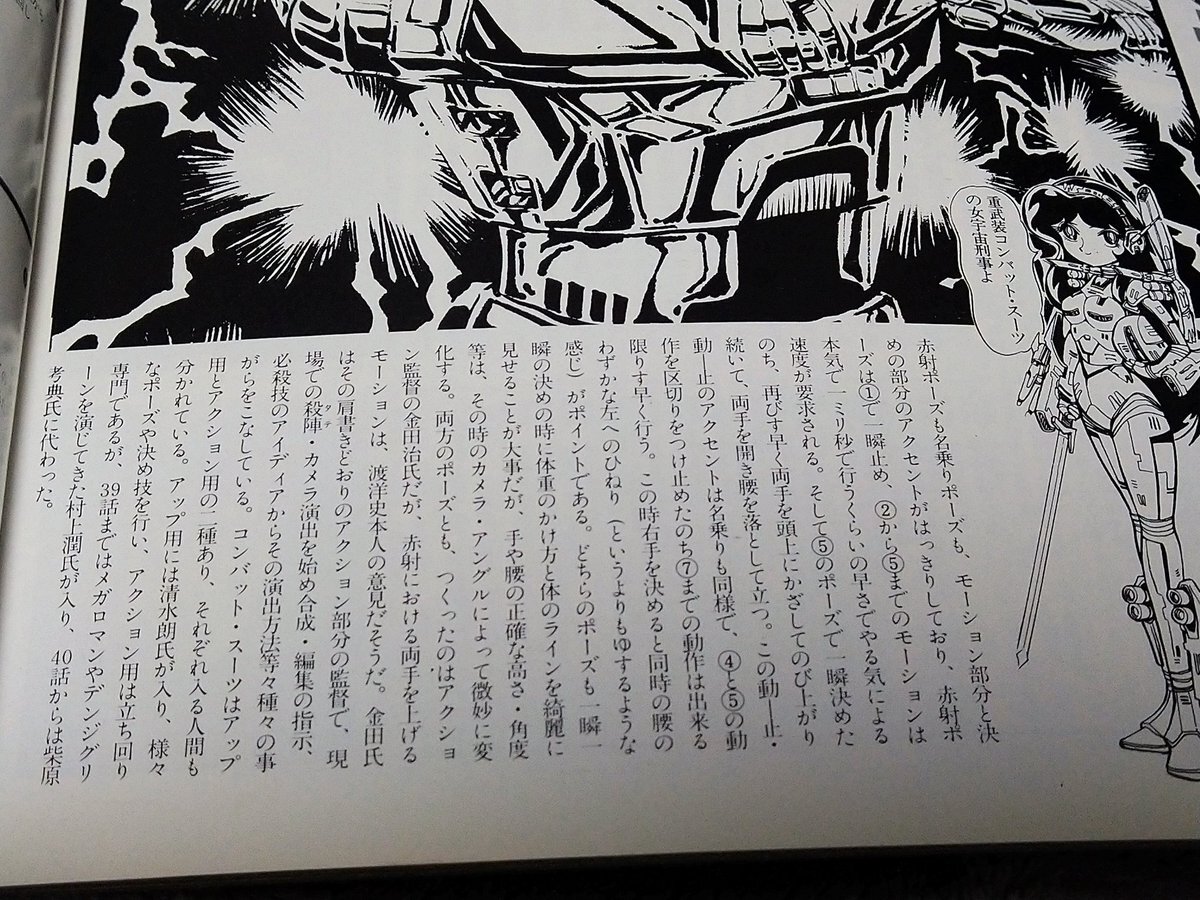 重武装コンバット・スーツ
の女宇宙刑事よ
赤射ポーズも名乗りポーズも、モーション部分と決
めの部分のアクセントがはっきりしており、赤射ポ
ーズは①で一瞬止め、②から⑤までのモーションは
本気で一ミリ秒で行うくらいの早さでやる気による
速度が要求される。そして⑤のポーズで一瞬決めた
のち、再びす早く両手を頭上にかざしてのび上がり
続いて、両手を開き腰を落として立つ。この動―止・
動―止のアクセントは名乗りも同様で、④と⑤の動
作を区切りをつけ止めたのち⑦までの動作は出来る
限りす早く行う。この時右手を決めると同時の腰の
わずかな左へのひねり（というよりもゆするような
感じ）がポイントである。どちらのポーズも一瞬一
瞬の決めの時に体重のかけ方と体のラインを綺麗に
見せることが大事だが、手や腰の正確な高さ・角度
等は、その時のカメラ・アングルによって微妙に変
化する。両方のポーズとも、つくったのはアクショ
ン監督の金田治氏だが、赤射における両手を上げる
モーションは、渡洋史本人の意見だそうだ。金田氏
はその肩書きどおりのアクション部分の監督で、現
場での殺陣・カメラ演出を始め合成・編集の指示、
タテ
必殺技のアイディアからその演出方法等々種々の事
がらをこなしている。コンバット・スーツはアップ
用とアクション用の二種あり、それぞれ入る人間も
分かれている。アップ用には清水朗氏が入り、様々
なポーズや決め技を行い、アクション用は立ち回り
専門であるが、39話まではメガロマンやデンジグリ
ーンを演じてきた村上潤氏が入り、40話からは柴原
考典氏に代わった。